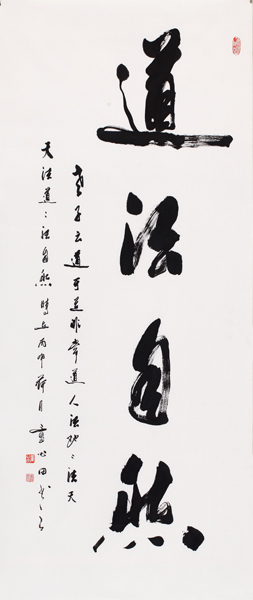 道法自然
老子云道可道非常道人法地〻法天
天法道〻法自然時在丙申荷月